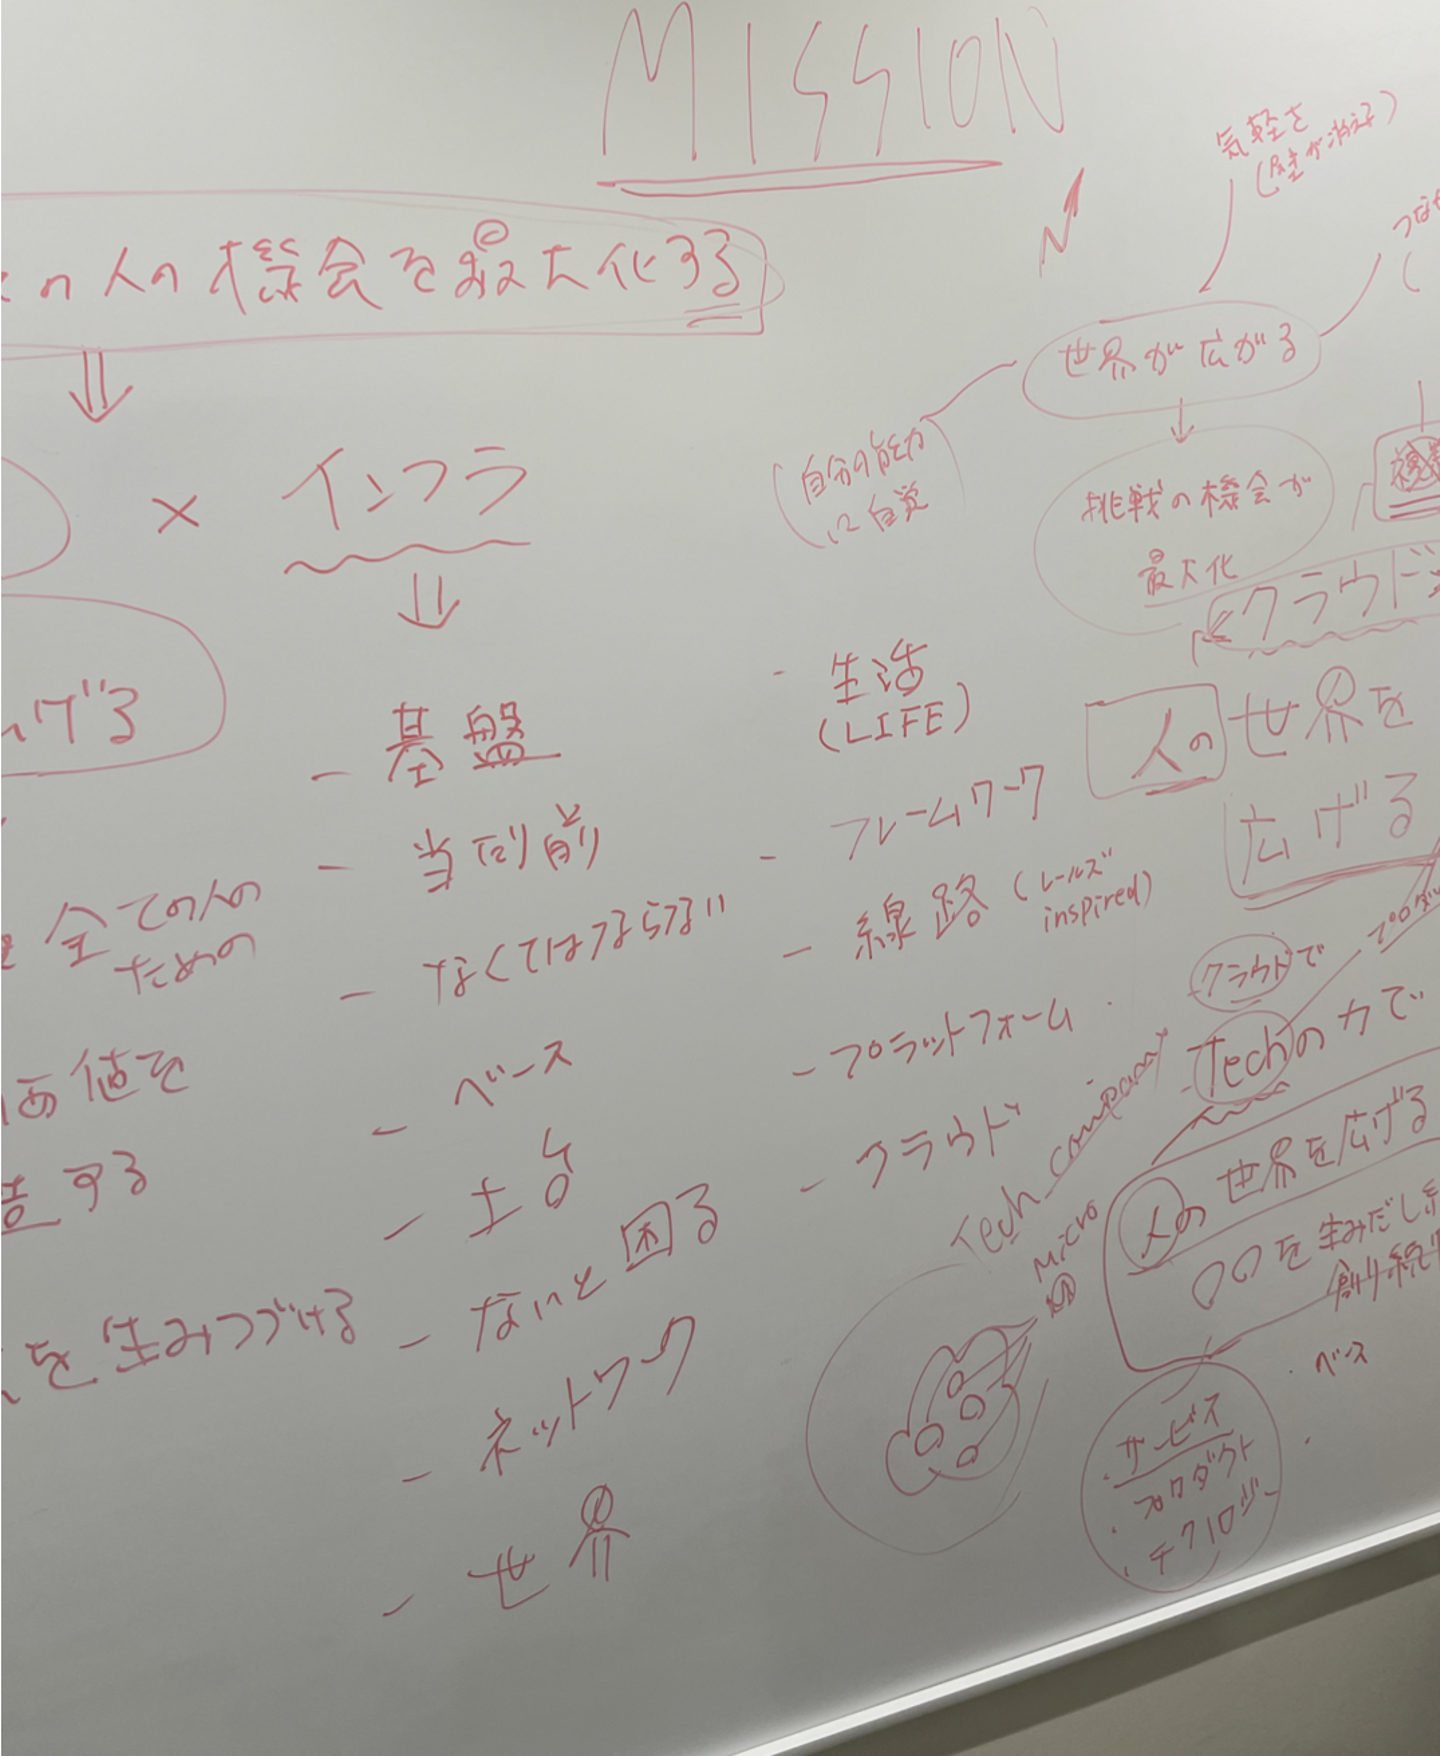 MISSION
の人の機会を最大化する
× インフラ
げる
- 基盤
- 当たり前
- なくてはならない
- ベース
- 土台
- ないと困る
- ネットワーク
- 世界
全ての人の
ための
価値を
する
を生みつづける
- 生活
(LIFE)
- フレームワーク
- 線路 (レールズ
inspired)
- プラットフォーム
- クラウド
気軽さ
(壁が消える)
つな
世界が広がる
(自分の能力
に自覚
挑戦の機会が
最大化
クラウド
人の世界を
広げる
クラウドで
プロダ
Techの力で
Tech company
Micro
人の世界を広げる
〇〇を生みだし続
創り続け
・ベース
・サービス
・プロダクト
・テクノロジー